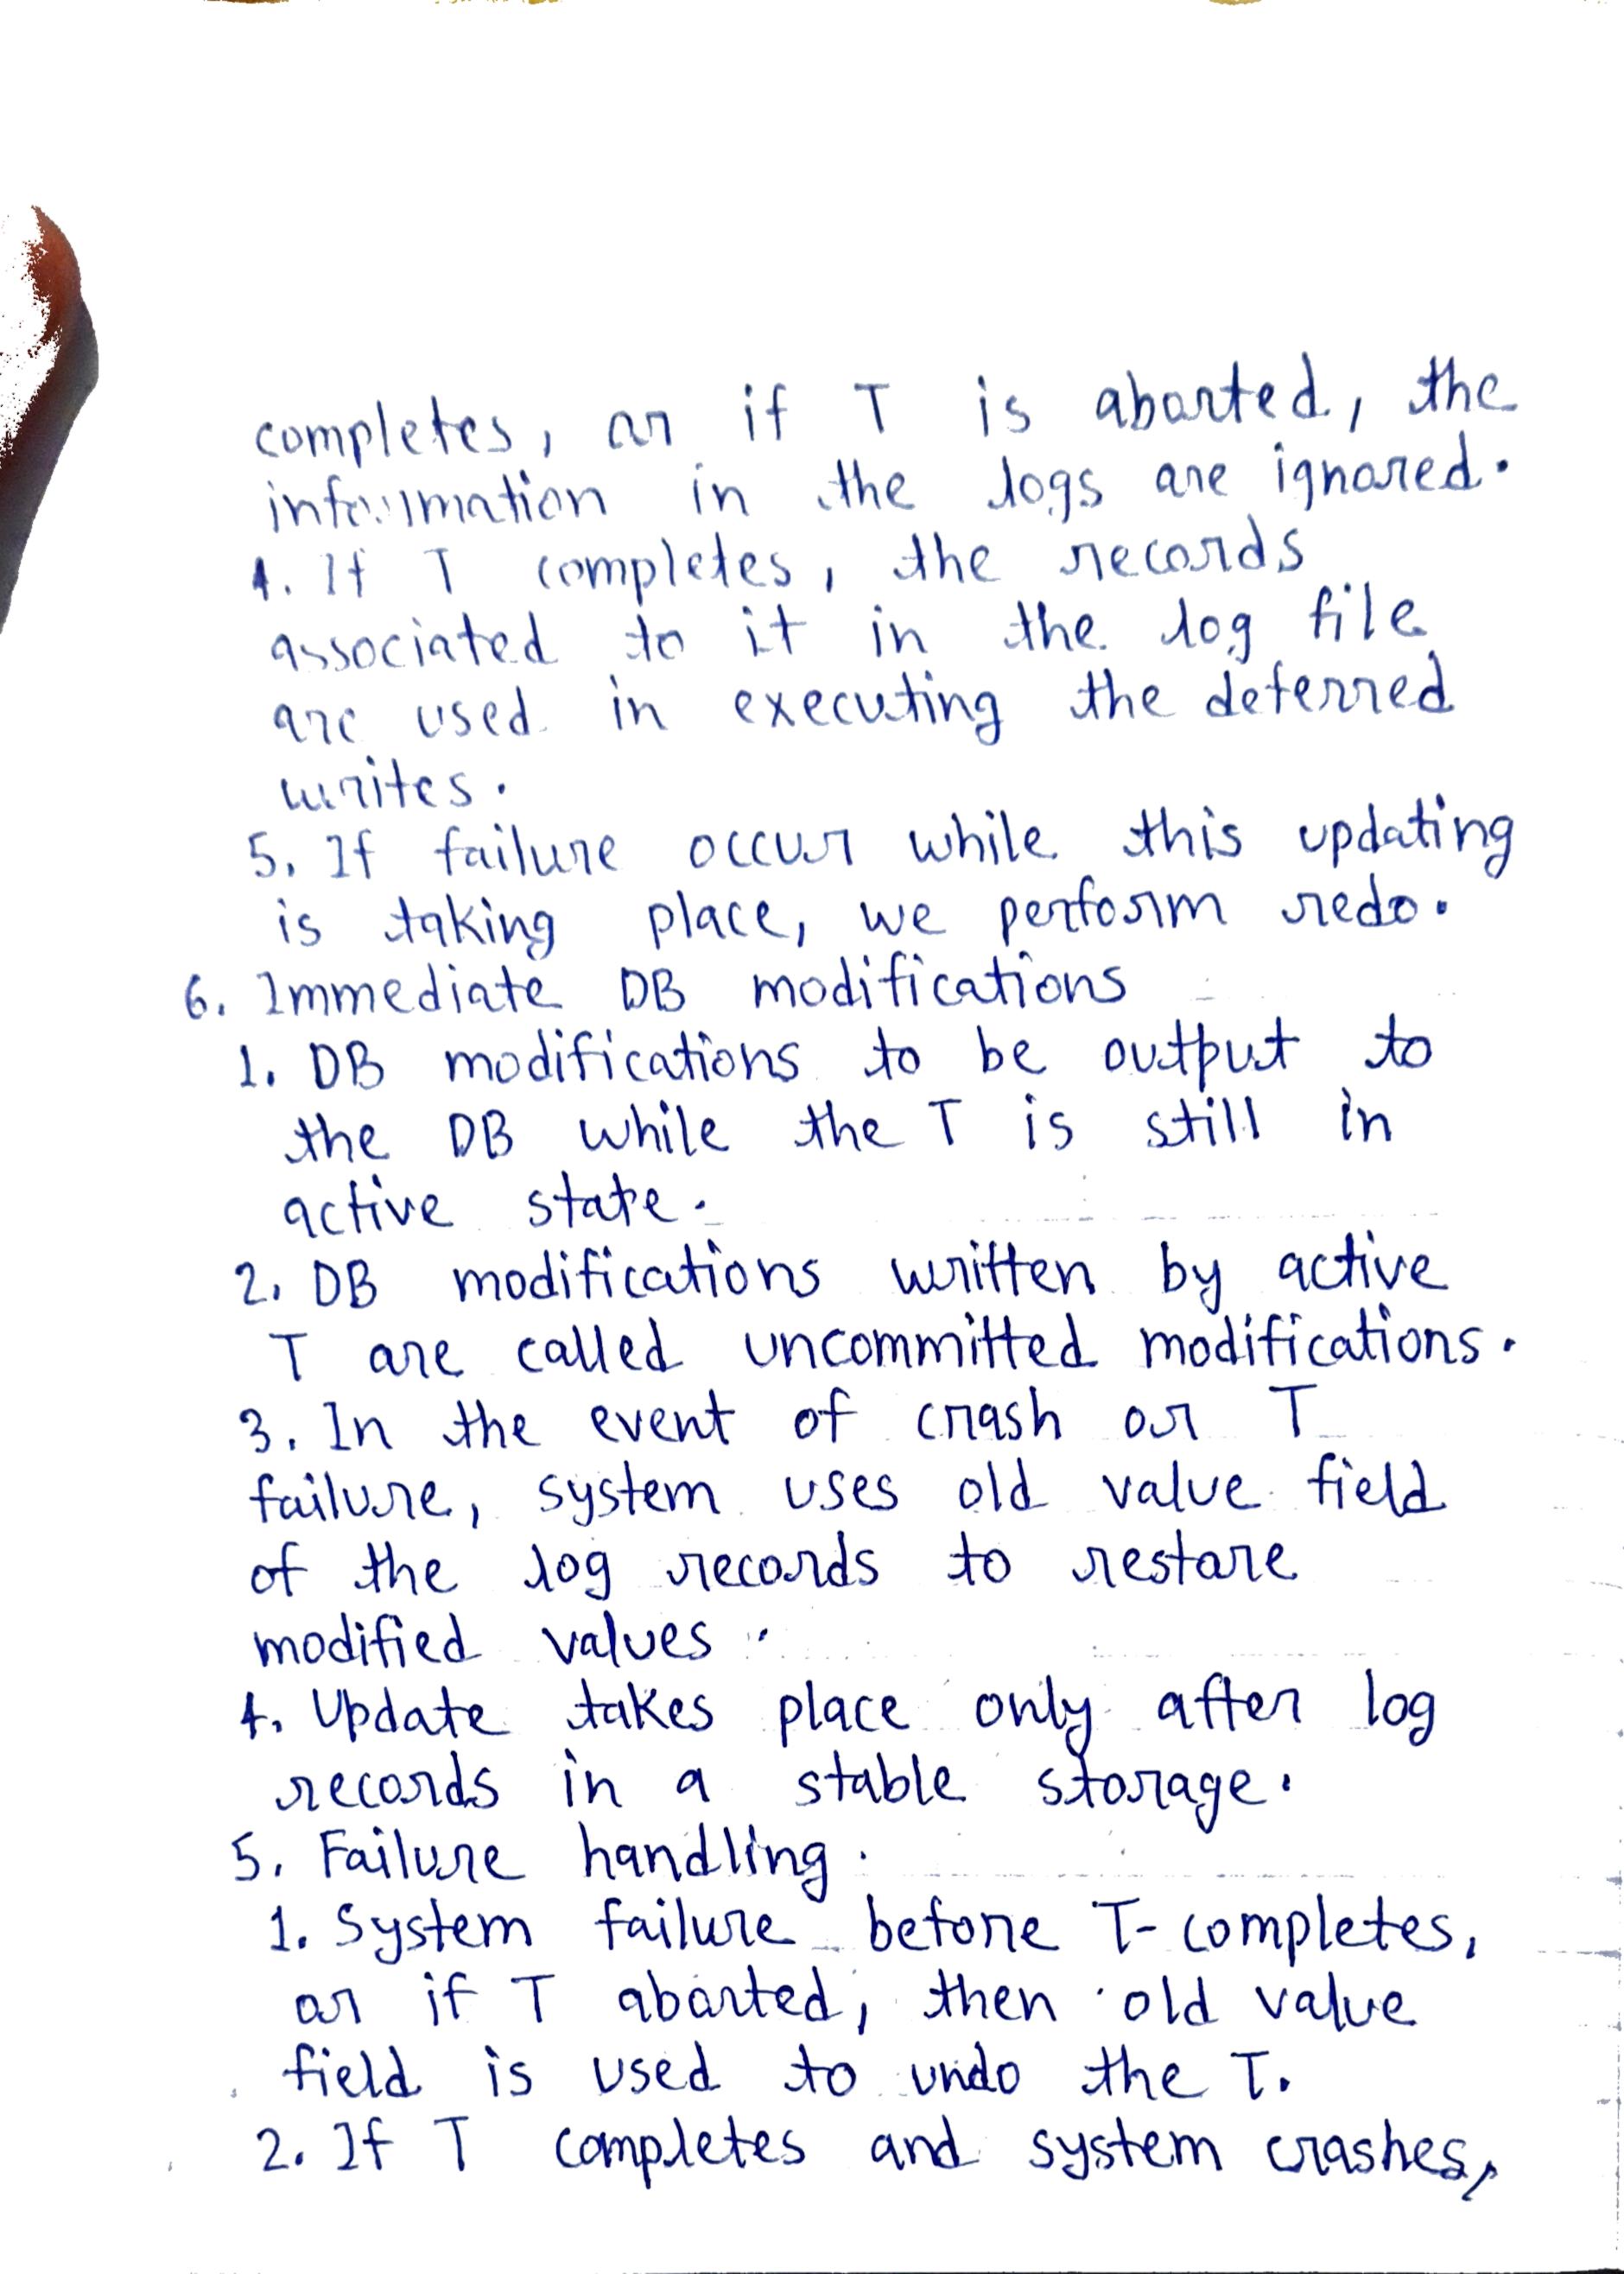 completes, or if T is aborted, the
information in the logs are ignored.
4. If T completes, the records
associated to it in the log file
are used in executing the deferred
writes.
5. If failure occur while this updating
is taking place, we perform redo.
6. Immediate DB modifications
1. DB modifications to be output to
the DB while the T is still in
active state.
2. DB modifications written by active
T are called uncommitted modifications.
3. In the event of crash or T
failure, system uses old value field
of the log records to restore
modified values.
4. Update takes place only after log
records in a stable storage.
5. Failure handling.
1. System failure before T-completes,
or if T aborted, then old value
field is used to undo the T.
2. If T completes and system crashes,